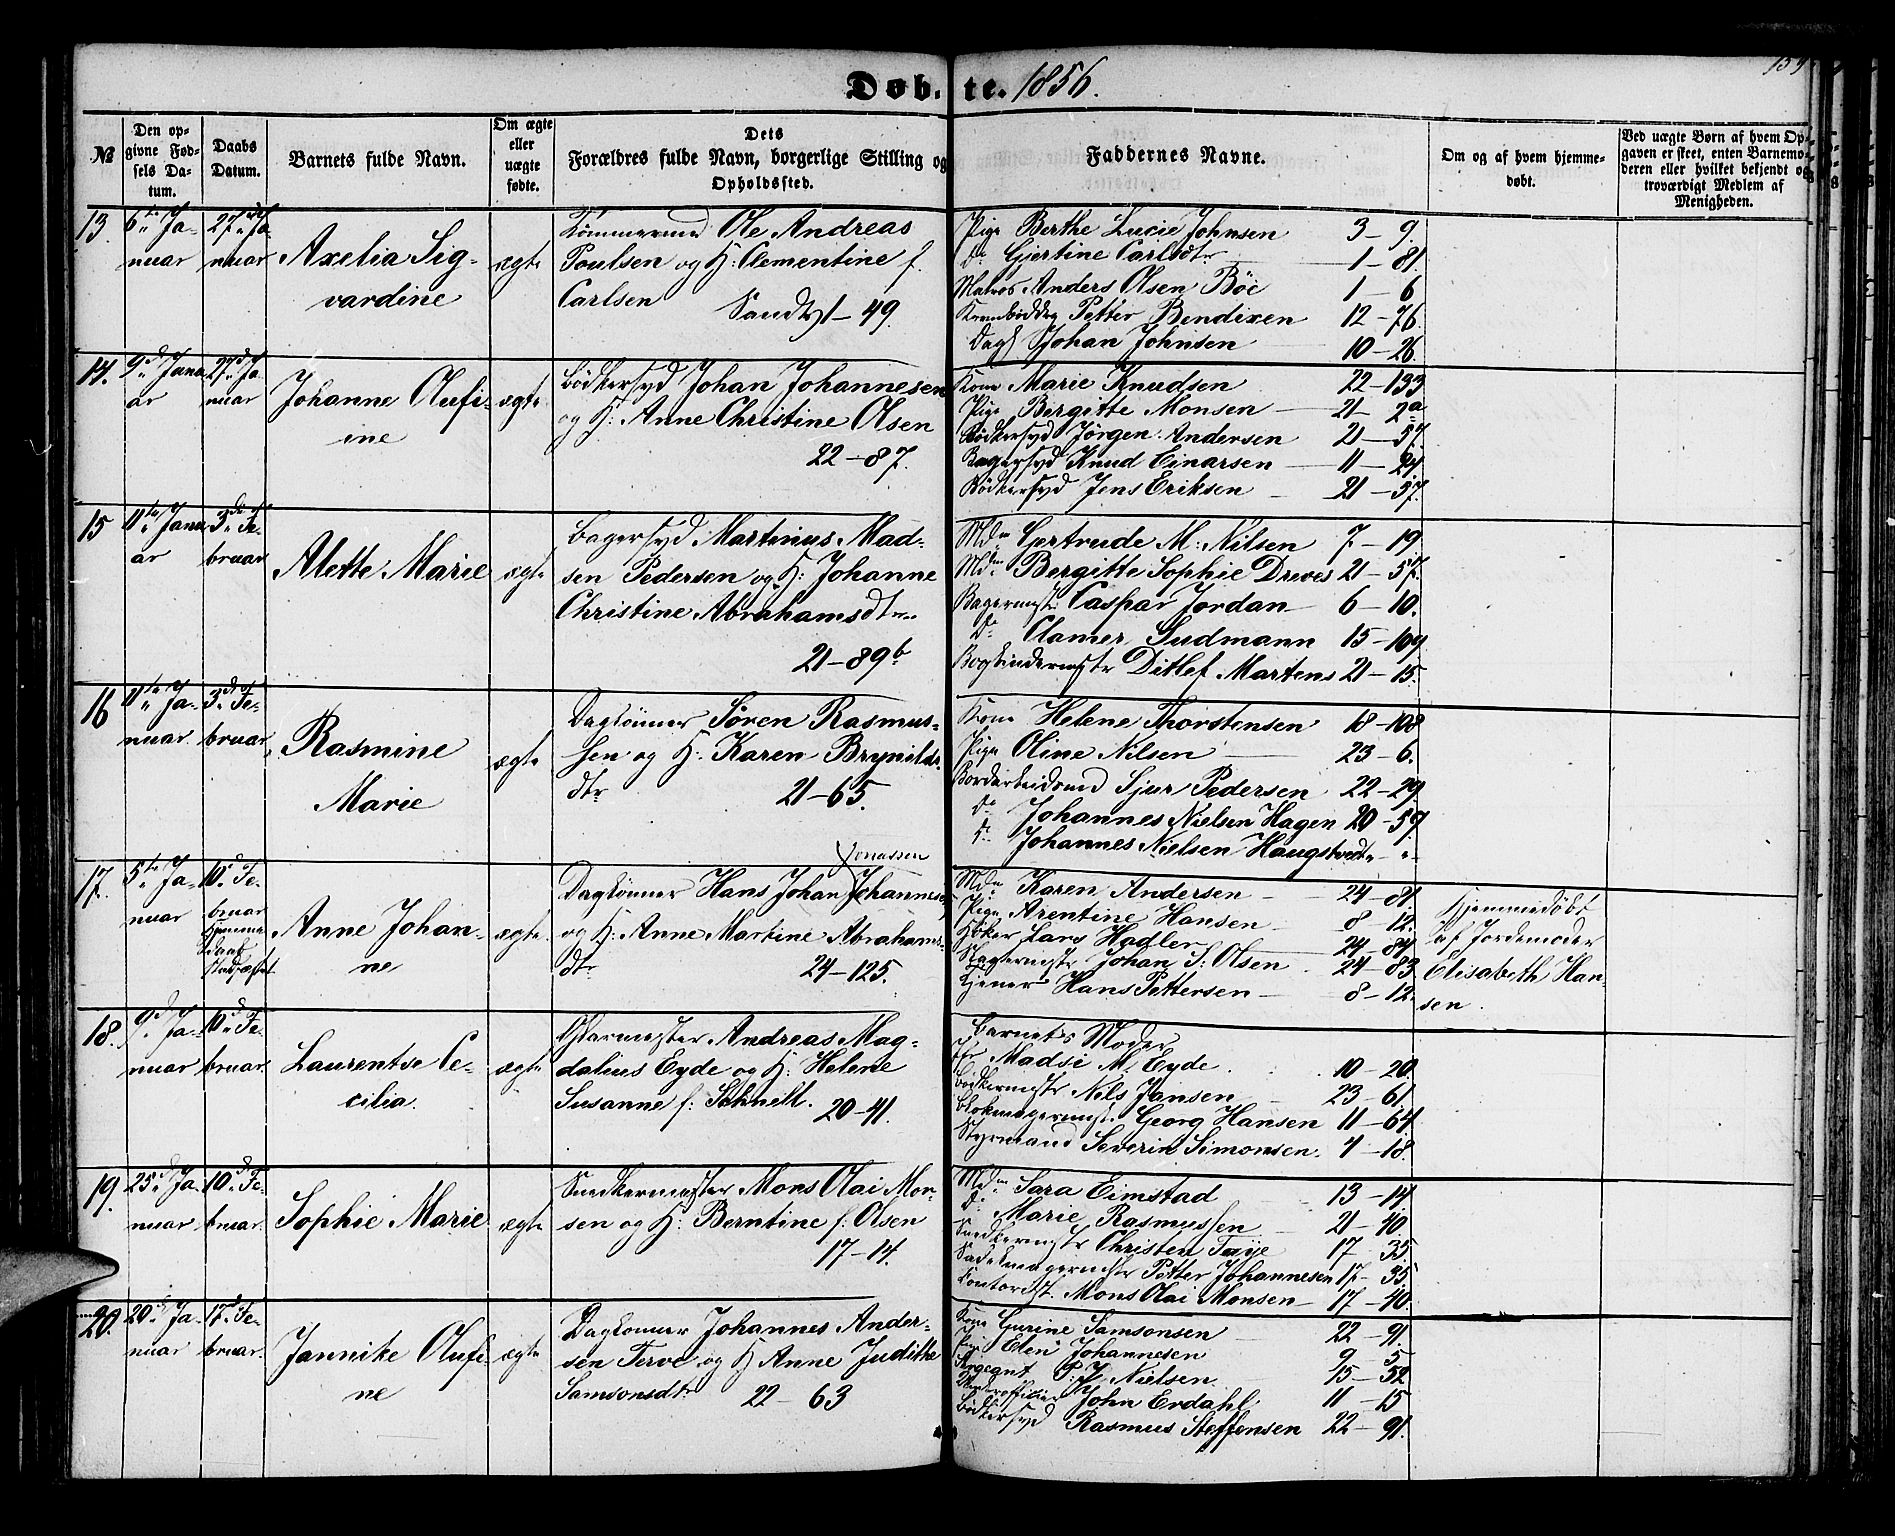 Døbte. 1856.
№
Den opgivne Fødsels Datum.
Daabs Datum.
Barnets fulde Navn.
Om ægte eller uægte fødte.
Dets Forældres fulde Navn, borgerlige Stilling og Opholdssted.
Faddernes Navne.
Om og af hvem hjemmedøbt.
Ved uægte Børn af hvem Opgaven er skeet, enten Barnemoderen eller hvilket bekjendt og troværdigt Medlem af Menigheden.
13.
6te Ja-
nuar
27de Ja-
nuar
Axelia Sig-
vardine
ægte
Tømmermd Ole Andreas
Poulsen og H: Clementine f.
Carlsen
Sandv 1-49.
Pige Berthe Lucie Johnsen 3-9.
Do Gjertine Carlsdtr 1-81.
Matros Anders Olsen Böe 1-6
Petter Bendixen 12-76.
Dagl Johan Johnsen 10-26.
14.
9de Janu-
ar
27de Ja-
nuar
Johanne Olufi-
ine
ægte
Bödkersvd Johan Johannesen
og H: Anne Christine Olsen
22-87.
Kone Marie Knudsen 22-133
Pige Bergitte Monsen 21-2a
Bödkersvd Jörgen Andersen 21-57.
Bagersvd Knud Einarsen 11-24.
Bödkersvd Jens Eriksen 21-57.
15
11te Janu-
ar
3de Fe-
bruar
Alette Marie
ægte
Bagersvd Martinus Mad-
sen Pedersen og H: Johanne
Christine Abrahamsdtr
21-89b
Mdm Gertrude M: Nilsen 7-19
Mdm Bergitte Sophie Dreves 21-57.
Bagermstr Caspar Jordan 6-10.
Do Clamer Sudmann 15-109
Bogbindermstr Ditlef Martens 21-15.
16
11te Ja-
nuar
3de Fe-
bruar
Rasmine
Marie
ægte
Daglönner Sören Rasmus-
sen og H. Karen Brynilds-
dtr
21-65.
Kone Helene Thorstensen 18-108
Pige Oline Nilsen 23-6.
Bordarbeidsmd Sjur Pedersen 22-29
do Johannes Nielsen Hagen 20-59.
do Johannes Nielsen Haugstvedt " - "
17.
5te Ja-
nuar
10de Fe-
bruar
Hjemme-
daab
stadfæstet
Anne Johan-
ne
ægte.
Jonassen
Daglönner Hans Johan Johannsen
og H: Anne Martine Abrahams-
dtr
24-125.
Mdm Karen Andersen 24-81.
Pige Arentine Hansen 8-12.
Höker Lars Hadler 24-84.
Slagtermstr Johan S: Olsen 24-83.
Tjener Hans Pettersen 8-12.
Hjemmedöbt
af Jordemoder
Elisabeth Han-
sen.
18.
9de Ja-
nuar
10de Fe-
bruar
Laurentse Ce-
cilia.
ægte
Glarmester Andreas Mag-
dalius Eyde og H: Helene
Susanne f: Schnell. 20-41.
Barnets Moder
Jfr Madsi M. Eyde 10-20.
Bödkermstr Nils Jansen 23-61
Blokmagermstr Georg Hansen 11-64
Styrmand Severin Simonsen. 4-18.
19.
25de Ja-
nuar
10de Fe-
bruar.
Sophie Marie
ægte
Snedkermester Mons Olai Mon-
sen og H: Berntine f: Olsen
17-14.
Mdm Sara Eimstad 13-14.
do Marie Rasmussen 21-40.
Snedkermstr Christen Faye 17-35.
Sadelmagermstr Petter Johannesen 17-35
Kontorist. Mons Olai Monsen 17-40.
20.
20de Ja-
nuar
17de Fe-
bruar.
Jannike Olufi-
ne
ægte
Daglonner Johannes Ander-
sen Terve og H Anne Judithe
Samsonsdtr 22-63
Kone Gurine Samsonsen 22-91.
Pige Elen Johannesen 9-5
Sergeant P. J. Nielsen 15-52
Underofficier John Erdahl 11-15
Bödkersvd Rasmus Steffensen 22-91.